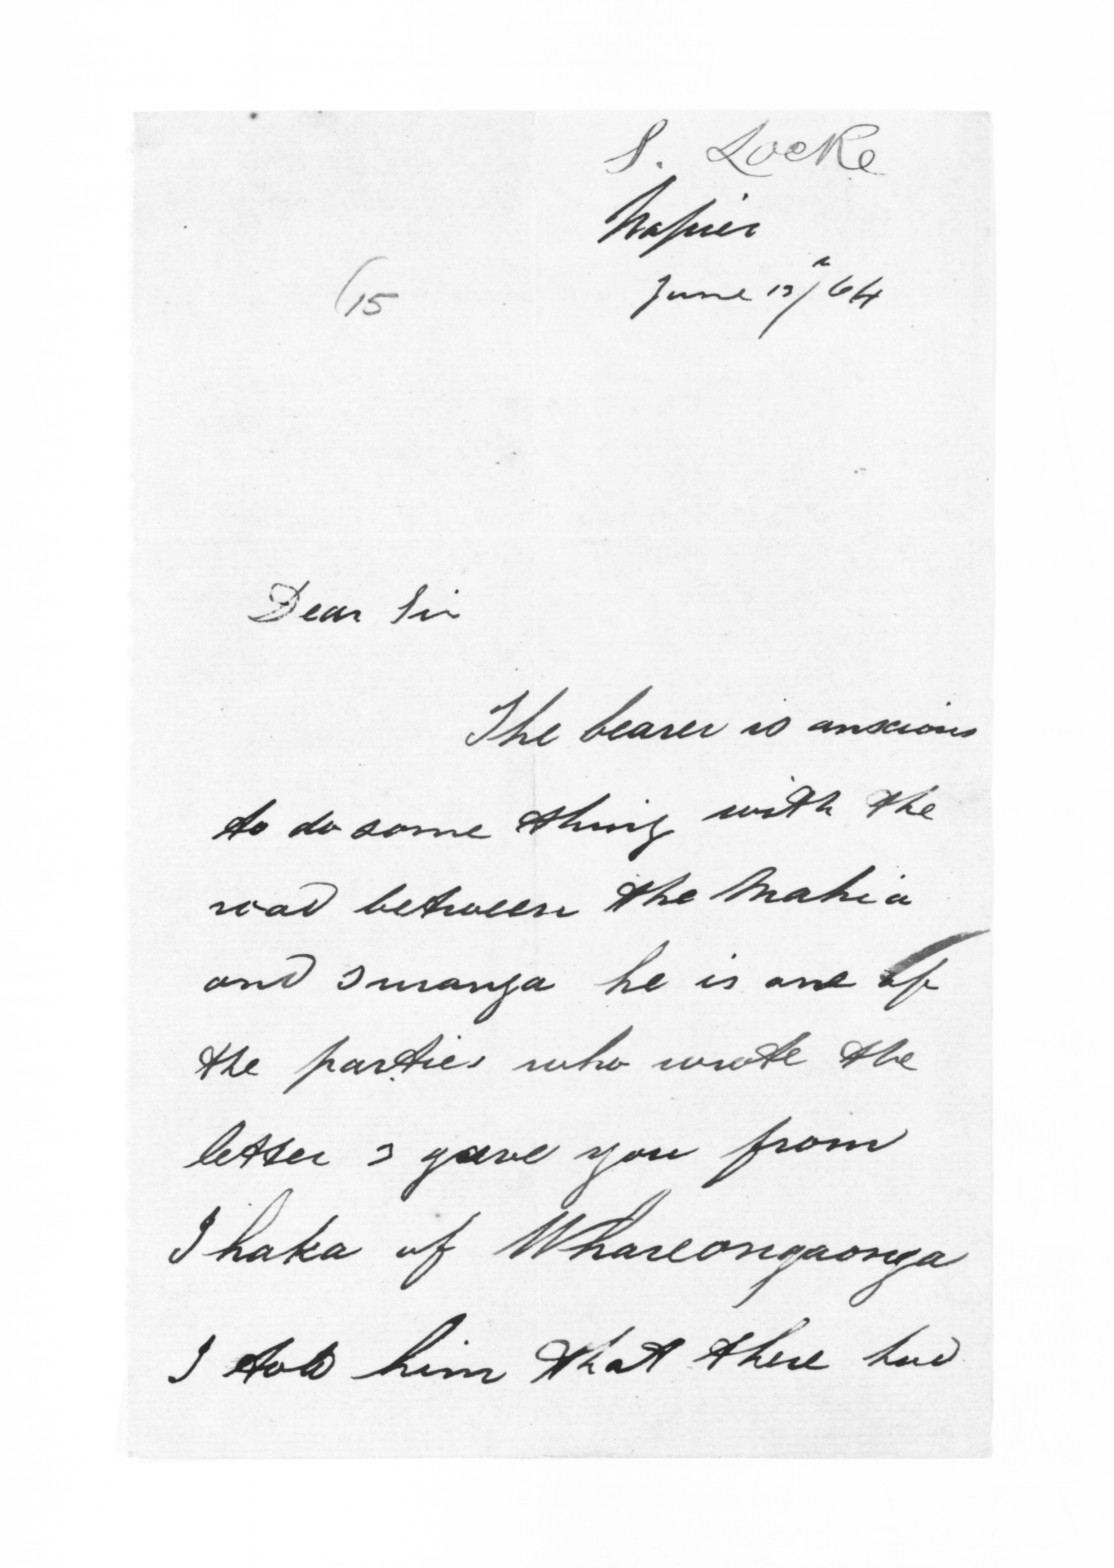 S. Locke
Napier
June 13/64
(15
Dear Sir
The bearer is anxious
to do some thing with the
road between the Mahia
and Turanga he is one of
the parties who wrote the
letter I gave you from
Ihaka of Whareongaonga
I told him that there had